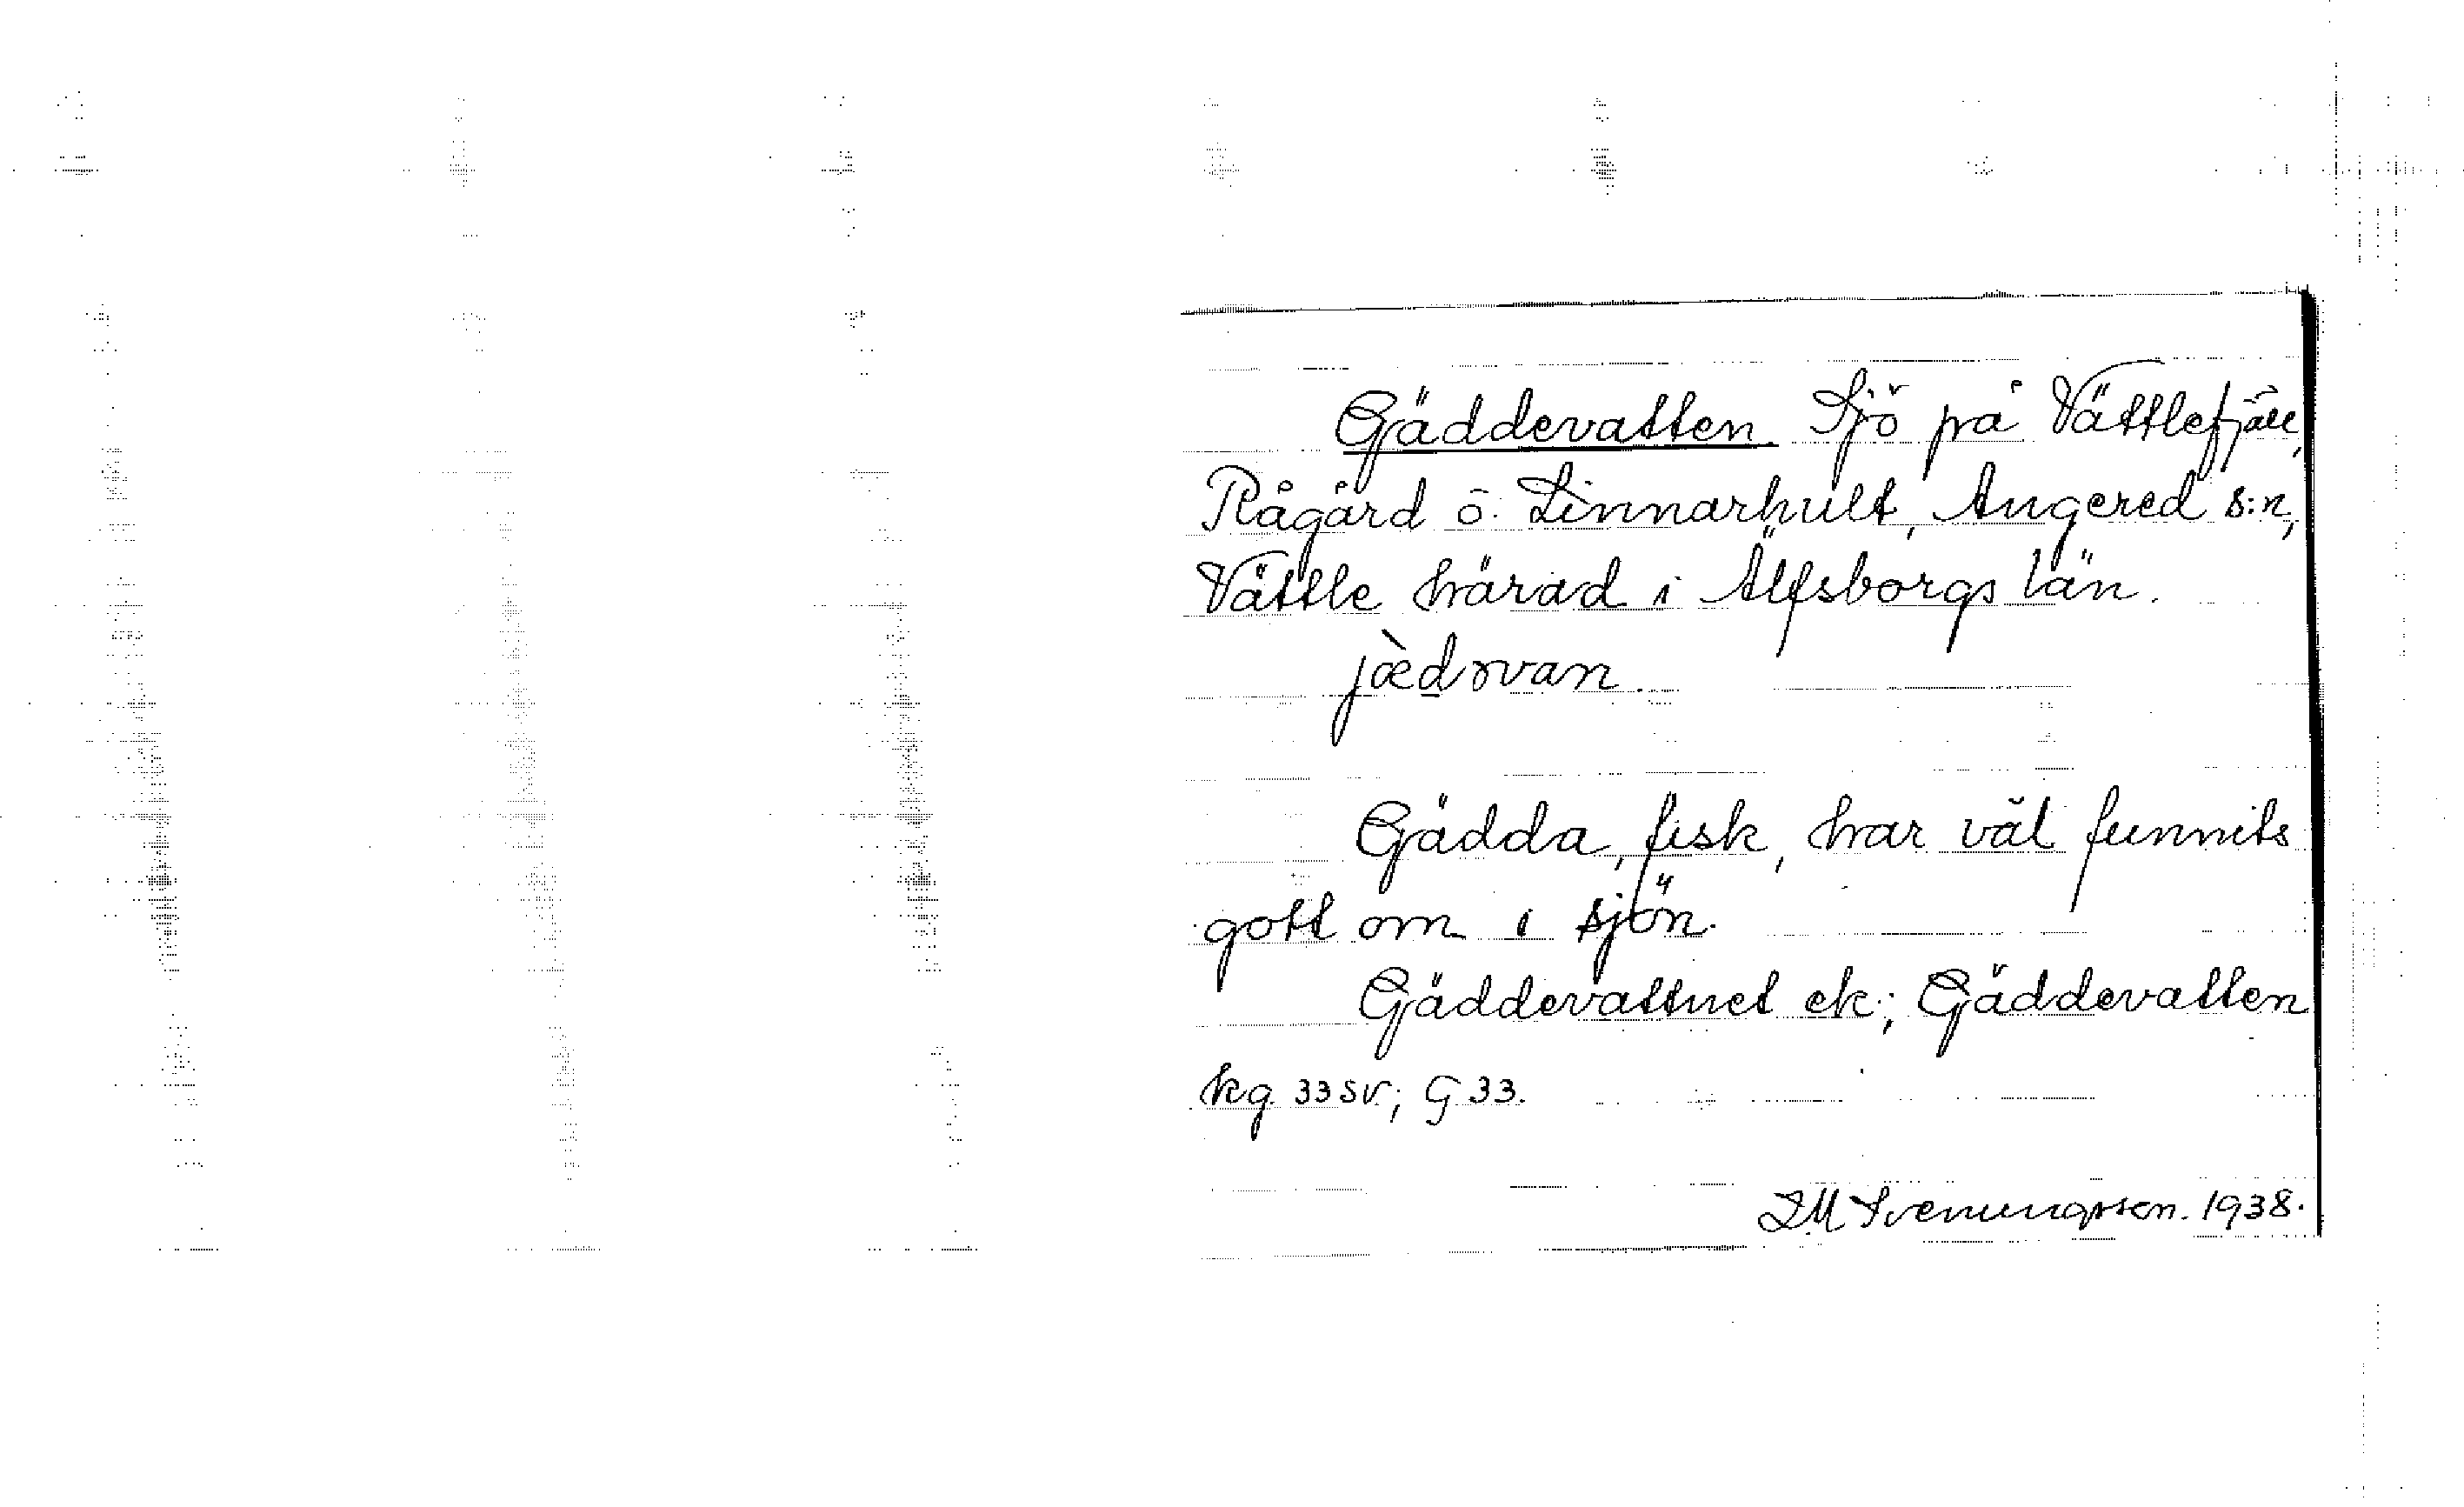 Gäddevatten. Sjö på Vättlefjäll,
Rågård ö. Linnarhult, Angered s:n,
Vättle härad i Älfsborgs län.
jæ̀dɤvan
Gädda, fisk, har väl funnits
gott om i sjön.
Gäddevattnet ek; Gäddevatten
kg 33 SV; G 33.
IM Svenungsson. 1938.